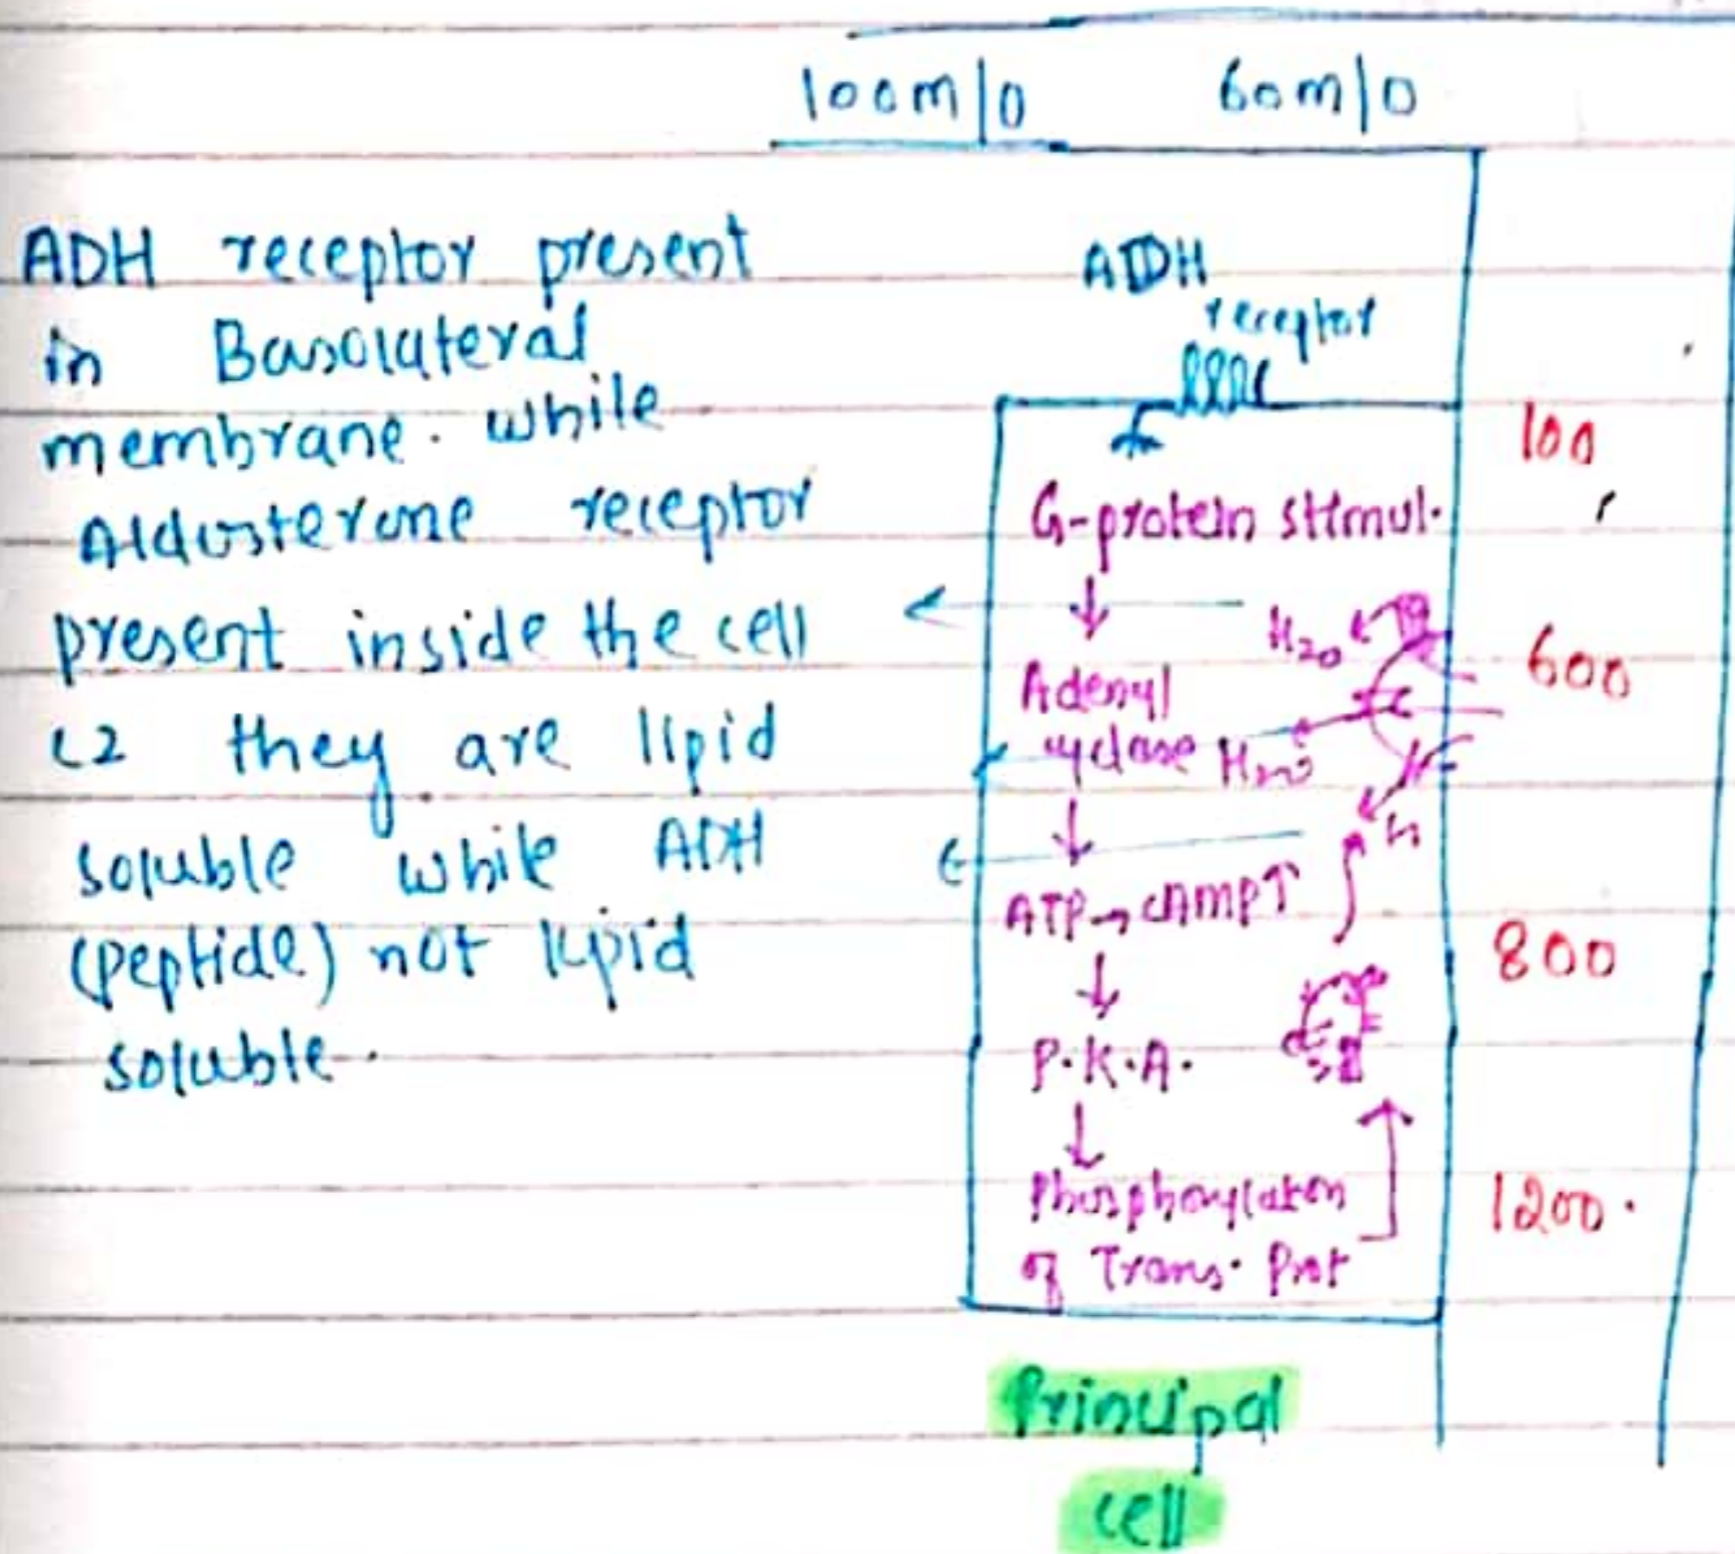 100m/0 60m/0
ADH receptor present
in Basolateral
membrane. while
Aldosterone receptor
present inside the cell
they are lipid
soluble while ADH
(peptide) not lipid
soluble.
ADH
receptor
G-protein stimul.
↓
H20
Adenyl
cyclase
↓
ATP→ CAMP↑
↓
P.K.A.
↓
Phosphorylation
of Trans. Prot
100
600
800
1200.
Principal
cell